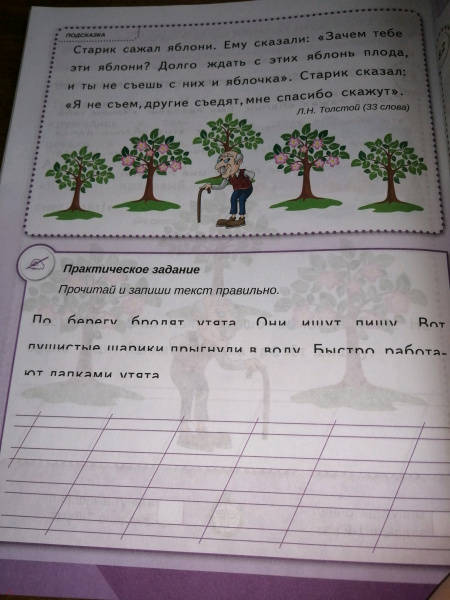 ПОДСКАЗКА
Старик сажал яблони. Ему сказали: «Зачем тебе
эти яблони? Долго ждать с этих яблонь плода,
и ты не съешь с них и яблочка». Старик сказал:
«Я не съем, другие съедят, мне спасибо скажут».
Л.Н. Толстой (33 слова)
Практическое задание
Прочитай и запиши текст правильно.
По берегу бродят утята. Они ищут пищу. Вот
пушистые шарики прыгнули в воду. Быстро работа-
ют лапками утята.